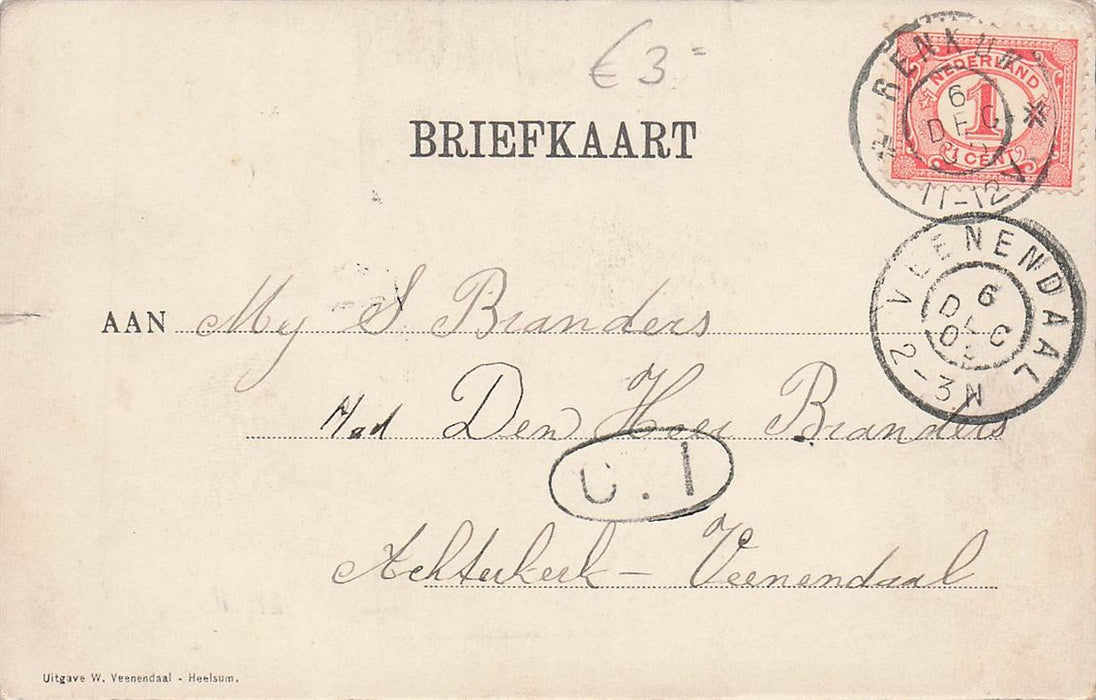 € 3 =
BRIEFKAART
NEDERLAND
1
CENT
RENKUM
6
DEC
11-12
VEENENDAAL
6
DEC
2-3N
AAN Mej S Branders
Den Heer Branders
Achterkerk - Veenendaal
Uitgave W. Veenendaal - Heelsum.